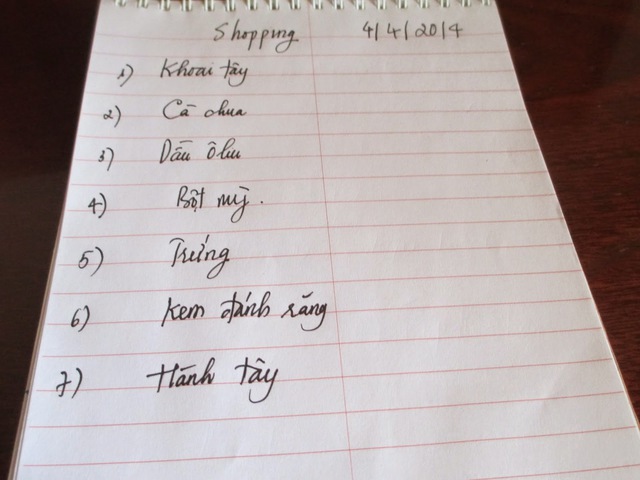 Shopping 4/4/2014
1) Khoai tây
2) Cà chua
3) Dầu ôliu
4) Bột mỳ.
5) Trứng
6) Kem đánh răng
7) Hành tây